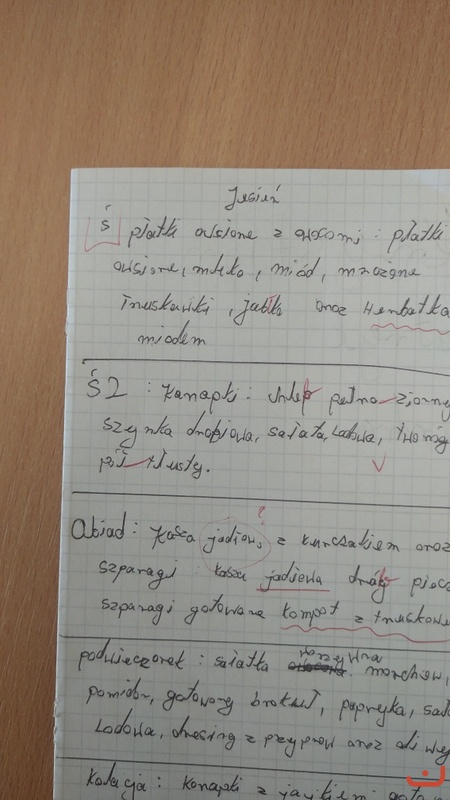 Jesień
Ś płatki owsiane z owocami : płatki
owsiane, mleko, miód, mrożone
truskawki, jabłka oraz Herbatka
miodem
Ś2 : Kanapki : chleb pełno-ziarny
szynka drobiowa, sałata Lodowa, twaróg
pół-tłusty.
Obiad : Kasza z kurczakiem oraz
szparagi : kasza jadiewa piec
szparagi gotowane kompot z truskawe
podwieczorek : sałatka warzywna marchew,
pomidor, gotowany brokuł, papryka, sał
Lodowa, dresing z przypraw oraz oliwę
Kolacja : Kanapki z